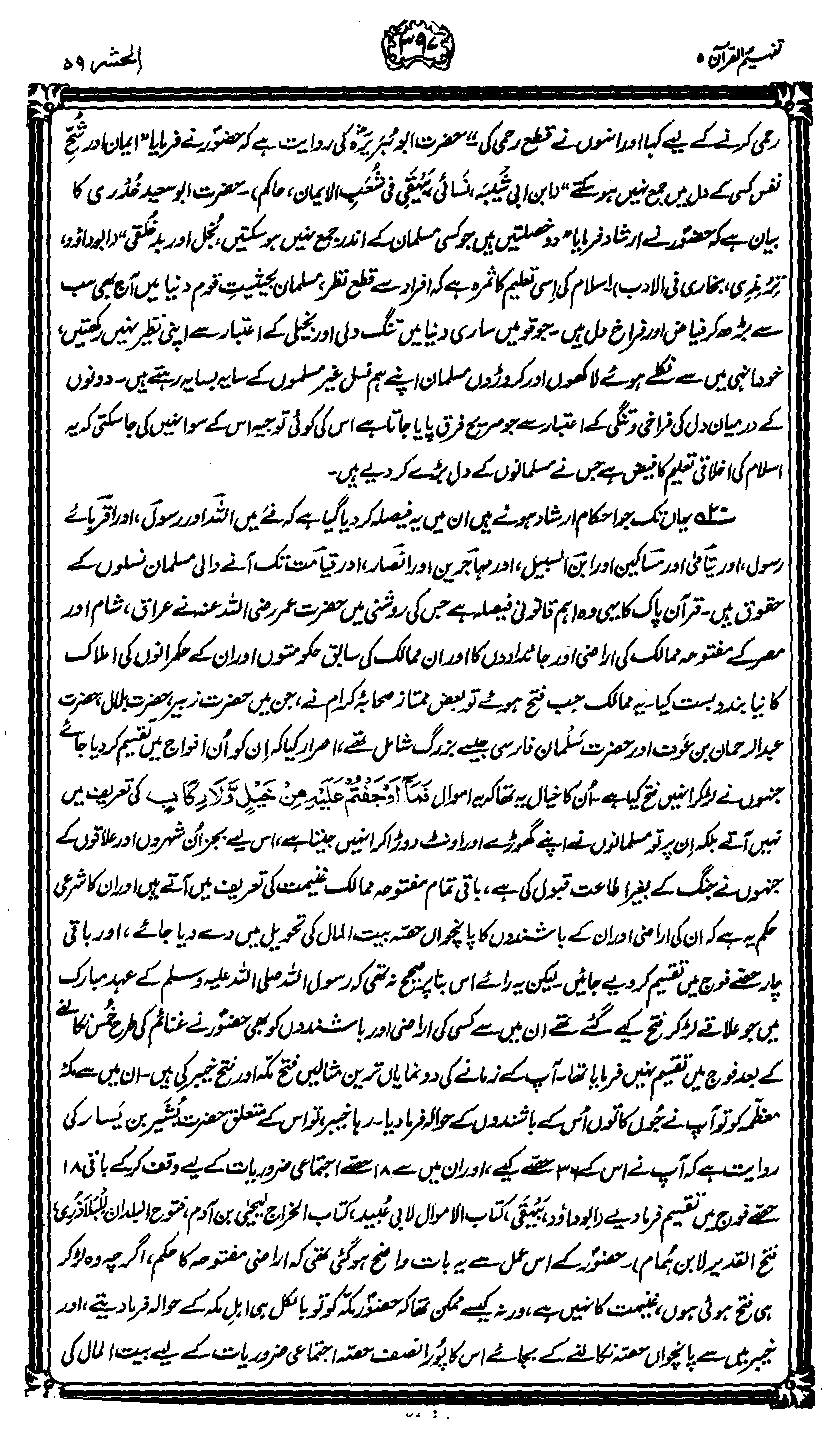 تفہیم القرآن ۵
۳۹۷
الحشر ۵۹
رحمی کرنے کے لیے کہا اور انہوں نے قطع رحمی کی“ حضرت ابو ہُریرہؓ کی روایت ہے کہ حضورؐ نے فرمایا ”ایمان اور شُحِّ
نفس کسی کے دل میں جمع نہیں ہو سکتے“ (ابن ابی شَیبہ، نسائی، بَیْہَقِی فی شُعَبِ الایمان، حاکم)۔ حضرت ابو سعید خُدری کا
بیان ہے کہ حضورؐ نے ارشاد فرمایا ”دو خصلتیں ہیں جو کسی مسلمان کے اندر جمع نہیں ہو سکتیں، بُخل اور بد خُلقی“ (ابوداؤد،
تِرْمِذی، بخاری فی الادب)۔ اسلام کی اِسی تعلیم کا ثمرہ ہے کہ افراد سے قطع نظر، مسلمان بحیثیتِ قوم دنیا میں آج بھی سب
سے بڑھ کر فیاض اور فراخ دل ہیں۔ جو قومیں ساری دنیا میں تنگ دلی اور بخیلی کے اعتبار سے اپنی نظیر نہیں رکھتیں،
خود انہی میں سے نکلے ہوئے لاکھوں اور کروڑوں مسلمان اپنے ہم نسل غیر مسلموں کے سایہ بسایہ رہتے ہیں۔ دونوں
کے درمیان دل کی فراخی و تنگی کے اعتبار سے جو صریح فرق پایا جاتا ہے اس کی کوئی توجیہ اس کے سوا نہیں کی جا سکتی کہ یہ
اسلام کی اخلاقی تعلیم کا فیض ہے جس نے مسلمانوں کے دل بڑے کر دیے ہیں۔
۲۰؎ یہاں تک جو احکام ارشاد ہوئے ہیں ان میں یہ فیصلہ کر دیا گیا ہے کہ فَے میں اللہ اور رسول، اور اقربائے
رسول، اور یتامٰی اور مساکین اور ابن السبیل، اور مہاجرین اور انصار، اور قیامت تک آنے والی مسلمان نسلوں کے
حقوق ہیں۔ قرآن پاک کا یہی وہ اہم قانونی فیصلہ ہے جس کی روشنی میں حضرت عمر رضی اللہ عنہ نے عراق، شام اور
مصر کے مفتوحہ ممالک کی اراضی اور جائدادوں کا اور ان ممالک کی سابق حکومتوں اور ان کے حکمرانوں کی املاک
کا نیا بندوبست کیا۔ یہ ممالک جب فتح ہوئے تو بعض ممتاز صحابۂ کرام نے، جن میں حضرت زبیر، حضرت بلال، حضرت
عبدالرحمان بن عَوف اور حضرت سَلمان فارسی جیسے بزرگ شامل تھے، اصرار کیا کہ اِن کو اُن افواج میں تقسیم کر دیا جائے
جنہوں نے لڑ کر انہیں فتح کیا ہے۔ اُن کا خیال یہ تھا کہ یہ اموال فَمَآ اَوْجَفْتُمْ عَلَیْہِ مِنْ خَیْلٍ وَّلَا رِکَابٍ کی تعریف میں
نہیں آتے بلکہ اِن پر تو مسلمانوں نے اپنے گھوڑے اور اونٹ دوڑا کر انہیں جیتا ہے، اس لیے بجز اُن شہروں اور علاقوں کے
جنہوں نے جنگ کے بغیر اطاعت قبول کی ہے، باقی تمام مفتوحہ ممالک غنیمت کی تعریف میں آتے ہیں اور ان کا شرعی
حکم یہ ہے کہ ان کی اراضی اور ان کے باشندوں کا پانچواں حصّہ بیت المال کی تحویل میں دے دیا جائے، اور باقی
چار حصّے فوج میں تقسیم کر دیے جائیں۔ لیکن یہ رائے اس بنا پر صحیح نہ تھی کہ رسول اللہ صلی اللہ علیہ وسلم کے عہد مبارک
میں جو علاقے لڑ کر فتح کیے گئے تھے ان میں سے کسی کی اراضی اور باشندوں کو بھی حضورؐ نے غنائم کی طرح خُمس نکالنے
کے بعد فوج میں تقسیم نہیں فرمایا تھا۔ آپ کے زمانے کی دو نمایاں ترین مثالیں فتح مکہ اور فتح خیبر کی ہیں۔ ان میں سے مکۂ
معظّمہ کو تو آپ نے جُوں کا تُوں اُس کے باشندوں کے حوالہ فرما دیا۔ رہا خیبر، تو اس کے متعلق حضرت بُشَیر بن یَسار کی
روایت ہے کہ آپ نے اس کے ۳۶ حصّے کیے، اور ان میں سے ۱۸ حصّے اجتماعی ضروریات کے لیے وقف کر کے باقی ۱۸
حصّے فوج میں تقسیم فرما دیے (ابوداؤد، بَیْہَقِی، کتاب الاموال لابی عُبید، کتاب الخراج لیحیٰی بن آدم، فتوح البلدان للبَلاذُری،
فتح القدیر لابن ہُمام)۔ حضورؐ کے اس عمل سے یہ بات واضح ہو گئی تھی کہ اراضی مفتوحہ کا حکم، اگرچہ وہ لڑ کر
ہی فتح ہوئی ہوں، غنیمت کا نہیں ہے، ورنہ کیسے ممکن تھا کہ حضورؐ مکّہ کو تو بالکل ہی اہلِ مکہ کے حوالہ فرما دیتے، اور
خیبر میں سے پانچواں حصّہ نکالنے کے بجائے اس کا پورا نصف حصّہ اجتماعی ضروریات کے لیے بیت المال کی